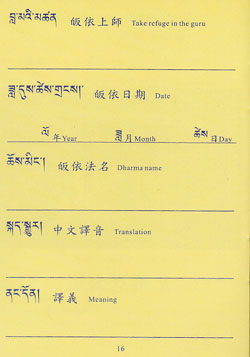 བླ་མའི་མཚན 皈依上師 Take refuge in the guru
ཟླ་དུས་ཚེས་གྲངས། 皈依日期 Date
ལོ 年Year ཟླ 月Month ཚེས 日Day
ཆོས་མིང་། 皈依法名 Dharma name
སྐད་སྒྱུར། 中文譯音 Translation
ནང་དོན། 譯義 Meaning
16